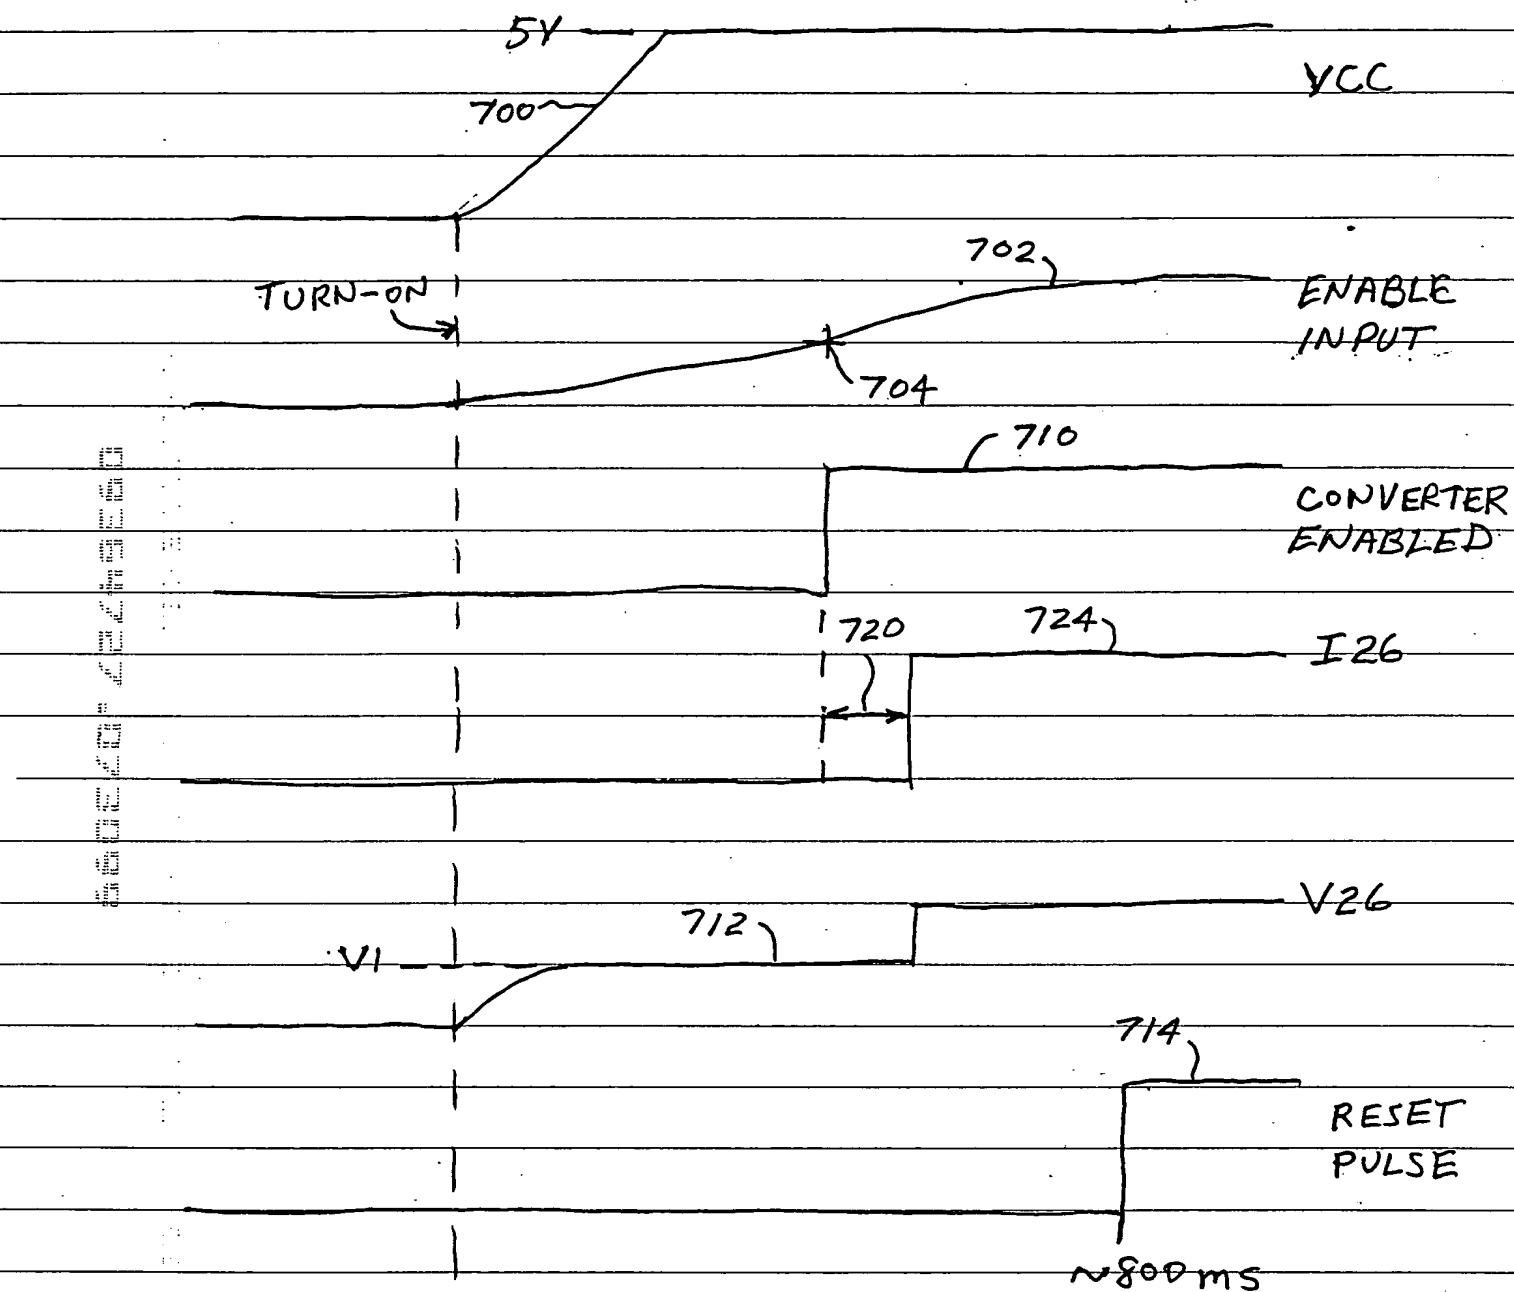 5V
VCC
700
702
TURN-ON
ENABLE
INPUT
704
710
CONVERTER
ENABLED
720
724
I26
712
V26
V1
714
RESET
PULSE
~800ms